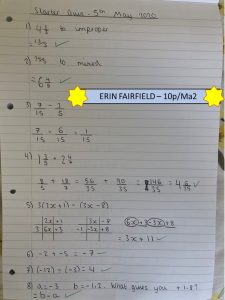 Starter Quiz - 5th May 2020
1) 4 1/3 to improper
= 13/3 ✓
to mixed
= 6 4/5 ✓
ERIN FAIRFIELD – 10p/Ma2
3) 7/15 - 2/5
7/15 - 6/15 = 1/15
4) 1 3/5 + 2 4/7
8/5 + 18/7 = 56/35 + 90/35 = 146/35 = 4 6/35 ✓
5) 3(2x+1) - (3x-8)
2x +1 3x -8
3 6x +3 -1 -3x +8
6x+3 -3x+8
= 3x + 11 ✓
6) -2 + -5 = -7 ✓
7) (-12) ÷ (-3) = 4 ✓
8) a = -3 b = -1.2. What gives you +1.8?
= b - a ✓